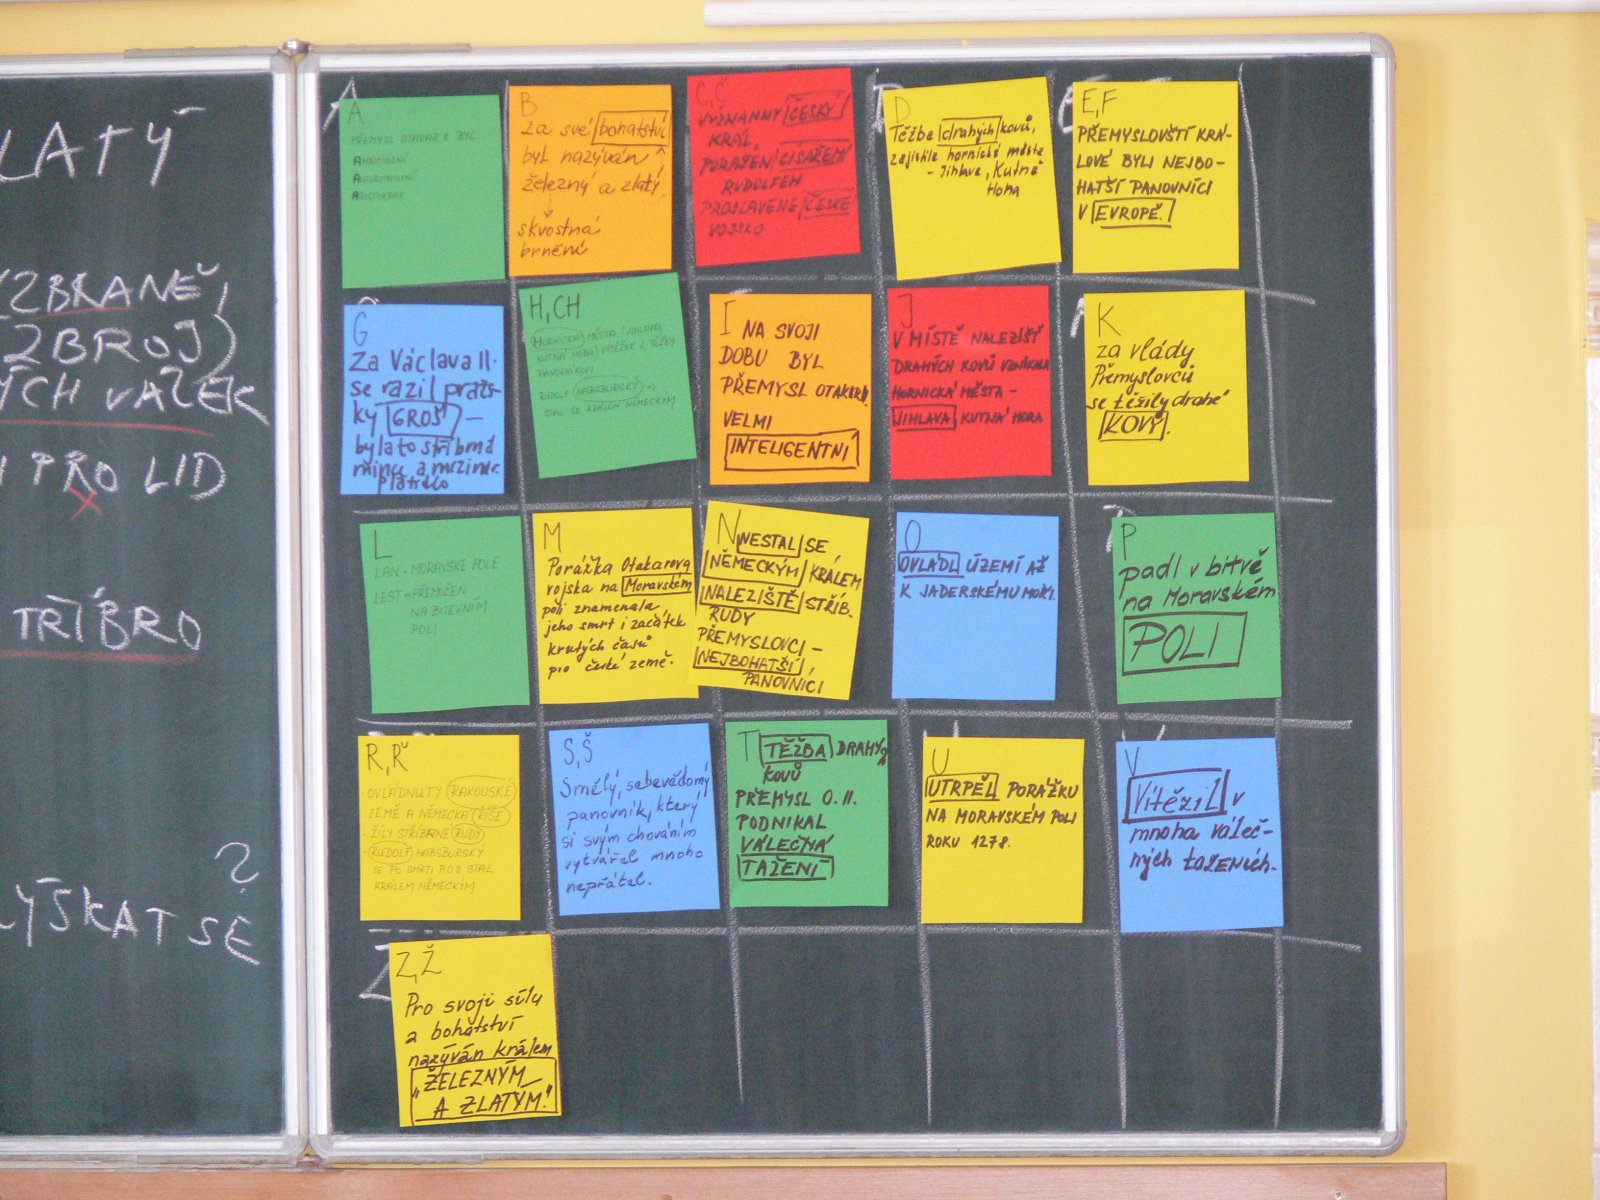 LATÝ
YZBRANĚ,
ZBROJ)
ÝCH VÁLEK
I PRO LID
X
TŘÍBRO
?
ÝSKAT SE
A
PŘEMYSL OTAKAR 2. BYL
AMBICIÓZNÍ
AUTORITATIVNÍ
B
Za své bohatství
byl nazýván
železný a zlatý.
skvostná
brnění
C,Č
VÝZNAMNÝ ČESKÝ
KRÁL,
PORAŽENÍ CÍSAŘEM
RUDOLFEM
PROSLAVENÉ ČESKÉ
VOJSKO
D
Těžba drahých kovů,
zajistila hornická města
- Jihlava, Kutná
Hora
E,F
PŘEMYSLOVŠTÍ KRÁ-
LOVÉ BYLI NEJBO-
HATŠÍ PANOVNÍCI
V EVROPĚ.
G
Za Václava II.
se razil praž-
ský GROŠ -
byla to stříbrná
mince a mezinár.
platidlo
H,CH
HORNICKÁ MĚSTA (JIHLAVA,
KUTNÁ HORA) VÝTĚŽEK Z TĚŽBY
PANOVNÍKOVI
RUDOLF HABSBURSKÝ -
STAL SE KRÁLEM NĚMECKÝM
I
NA SVOJI
DOBU BYL
PŘEMYSL OTAKAR II.
VELMI
INTELIGENTNÍ
J
V MÍSTĚ NALEZIŠŤ
DRAHÝCH KOVŮ VZNIKLA
HORNICKÁ MĚSTA -
JIHLAVA, KUTNÁ HORA
K
za vlády
Přemyslovců
se těžily drahé
KOVY.
L
LÁN - MORAVSKÉ POLE
LEST - PŘEMOŽEN
NA BITEVNÍM
POLI
M
Porážka Otakarova
vojska na Moravském
poli znamenala
jeho smrt i začátek
krutých časů
pro české země.
N
NESTAL SE
NĚMECKÝM KRÁLEM
NALEZIŠTĚ STŘÍB.
RUDY
PŘEMYSLOVCI -
NEJBOHATŠÍ,
PANOVNÍCI
O
OVLÁDL ÚZEMÍ AŽ
K JADERSKÉMU MOŘI.
P
padl v bitvě
na Moravském
POLI
R,Ř
OVLÁDNUTY RAKOUSKÉ
ZEMĚ A NĚMECKÁ ŘÍŠE
- ŽÍLY STŘÍBRNÉ RUDY
- RUDOLF HABSBURSKÝ
SE PO SMRTI P.O.II STAL
KRÁLEM NĚMECKÝM
S,Š
Smělý, sebevědomý
panovník, který
si svým chováním
vytvářel mnoho
nepřátel.
T
TĚŽBA DRAHÝCH
KOVŮ
PŘEMYSL O. II.
PODNIKAL
VÁLEČNÁ
TAŽENÍ
U
UTRPĚL PORÁŽKU
NA MORAVSKÉM POLI
ROKU 1278.
V
Vítězil v
mnoha váleč-
ných taženích.
Z,Ž
Pro svoji sílu
a bohatství
nazýván králem
"ŽELEZNÝM
A ZLATÝM."